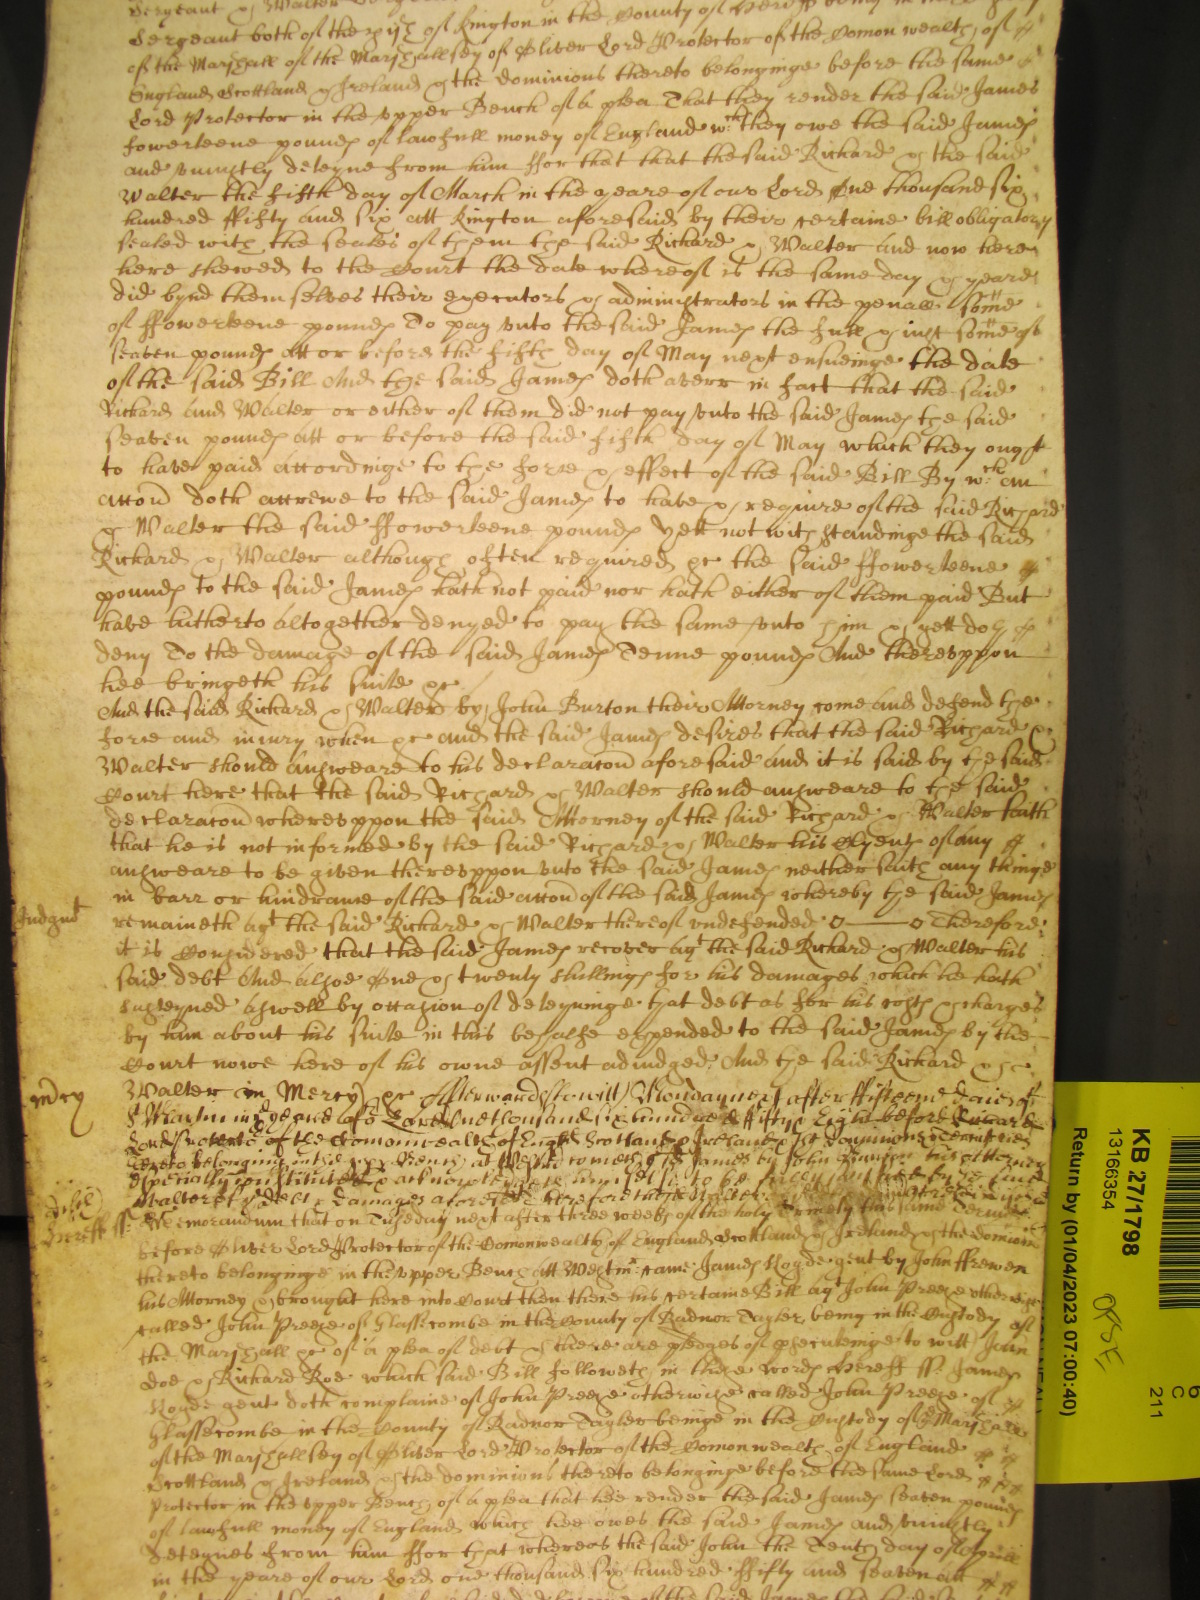 Sergeant & Walter
Sergeant both of the p'ish of Kington in the County of Heref being in the
of the Marshall of the Marshallsey of Oliver Lord Protector of the Comonwealth of
England Scottland & Ireland & the dominions thereto belonginge before the same
Lord Protector in the upper Bench of a plea That they render the said James
fowerteene pounds of lawfull money of England w:ch they owe the said James
and uniustly deteyne from him ffor that that the said Richard & the said
Walter the fifth day of March in the yeare of our Lord One thousand six
hundred ffifty and six att Kington aforesaid by their certaine bill obligatory
sealed with the seales of them the said Richard & Walter And now here
here shewed to the Court the date whereof is the same day & yeare
did bynd themselves their executors & administrators in the penall some
of ffowerteene pounds To pay unto the said James the full & iust some of
seaven pounds att or before the fifth day of May next ensueinge the date
of the said Bill And the said James doth averr in fact that the said
Richard and Walter or either of them did not pay unto the said James the said
seaven pounds att or before the said fifth day of May which they ought
to have paid accordinge to the force & effect of the said Bill By w:ch an
accon doth accrewe to the said James to have & require of the said Richard
& Walter the said ffowerteene pounds Yett notwithstandinge the said
Richard & Walter although often required &c the said ffowerteene
pounds to the said James hath not paid nor hath either of them paid But
have hitherto altogether denyed to pay the same unto him & yett doe
deny To the damage of the said James Tenne pounds And thereuppon
hee bringeth his suite &c
And the said Richard & Walter by John Burton their Attorney come and defend the
force and iniury when &c and the said James desires that the said Richard &
Walter should answeare to his declaracon aforesaid and it is said by the said
Court here that the said Richard & Walter should answeare to the said
declaracon whereuppon the said Attorney of the said Richard & Walter saith
that he is not informed by the said Richard & Walter his Clyents of any
answeare to be given thereuppon unto the said James neither saith any thinge
in barr or hindrance of the said accon of the said James whereby the said James
Iudgmt remaineth agt the said Richard & Walter thereof undefended Therefore
it is Considered that the said James recover agt the said Richard & Walter his
said debt And alsoe One & twenty shillings for his damages which he hath
susteyned aswell by occasion of deteyninge that debt as for his costs & charges
by him about his suite in this behalfe expended to the said James by the
Court nowe here of his owne assent adiudged And the said Richard &
mercy Walter in Mercy &c Afterwards (to witt) Monday next after fifteene daies of
St Martin in ye yeare of or Lord One thousand six hundred ffifty Eight before Richard
Lord Protector of the Comonwealth of England Scotland & Ireland & the Dominions & territories
thereto belonging in the upper Bench at Westmr cometh the said James by John his attorney
especially constituted & acknowledgeth himself to be fully satisfied by the said
Walter of ye debt & damages aforesaid therefore the said Walter
Heref ss. Memorandum that on Tuseday next after three weeks of the holy Trinity this same Terme
before Oliver Lord Protector of the Comonwealth of England Scottland & Ireland & the Dominions
thereto belonginge in the upper Bench att Westmr came James gent by John ffrewen
his Attorney & brought here into Court then there his certaine Bill agt John Preece otherwise
called John Preece of Glassecombe in the County of Radnor Tayler being in the Custody of
the Marshall &c of a plea of debt & there are pledges of prosecutinge to witt John
Doe & Richard Roe which said Bill followeth in these words Hereff ss. James
gent doth complaine of John Preece otherwise called John Preece of
Glassecombe in the County of Radnor Tayler beinge in the Custody of ye Marshall
of the Marshallsey of Oliver Lord Protector of the Comonwealth of England
Scottland & Ireland & the dominions thereto belonginge before the same Lord
Protector in the upper Bench of a plea that hee render the said James seaven pounds
of lawfull money of England which hee owes the said James and uniustly
deteynes from him ffor that whereas the said John the Tenth day of Aprill
in the yeare of our Lord one thousand six hundred ffifty and seaven att
KB 27/1798
13166354
Return by (01/04/2023 07:00:40)
6
C
211